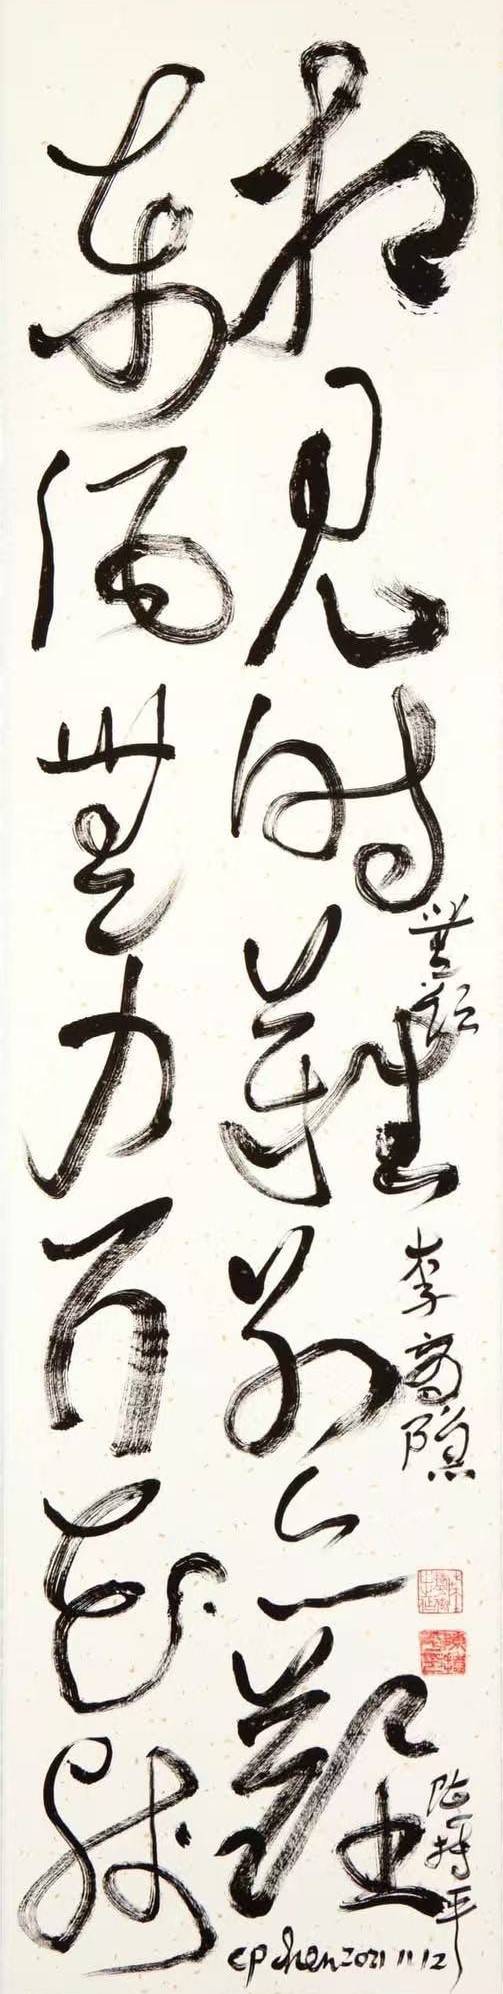 相見時難別亦難
東風無力百花殘
無題
李商隱
陳持平
CP chen 2021 11 12